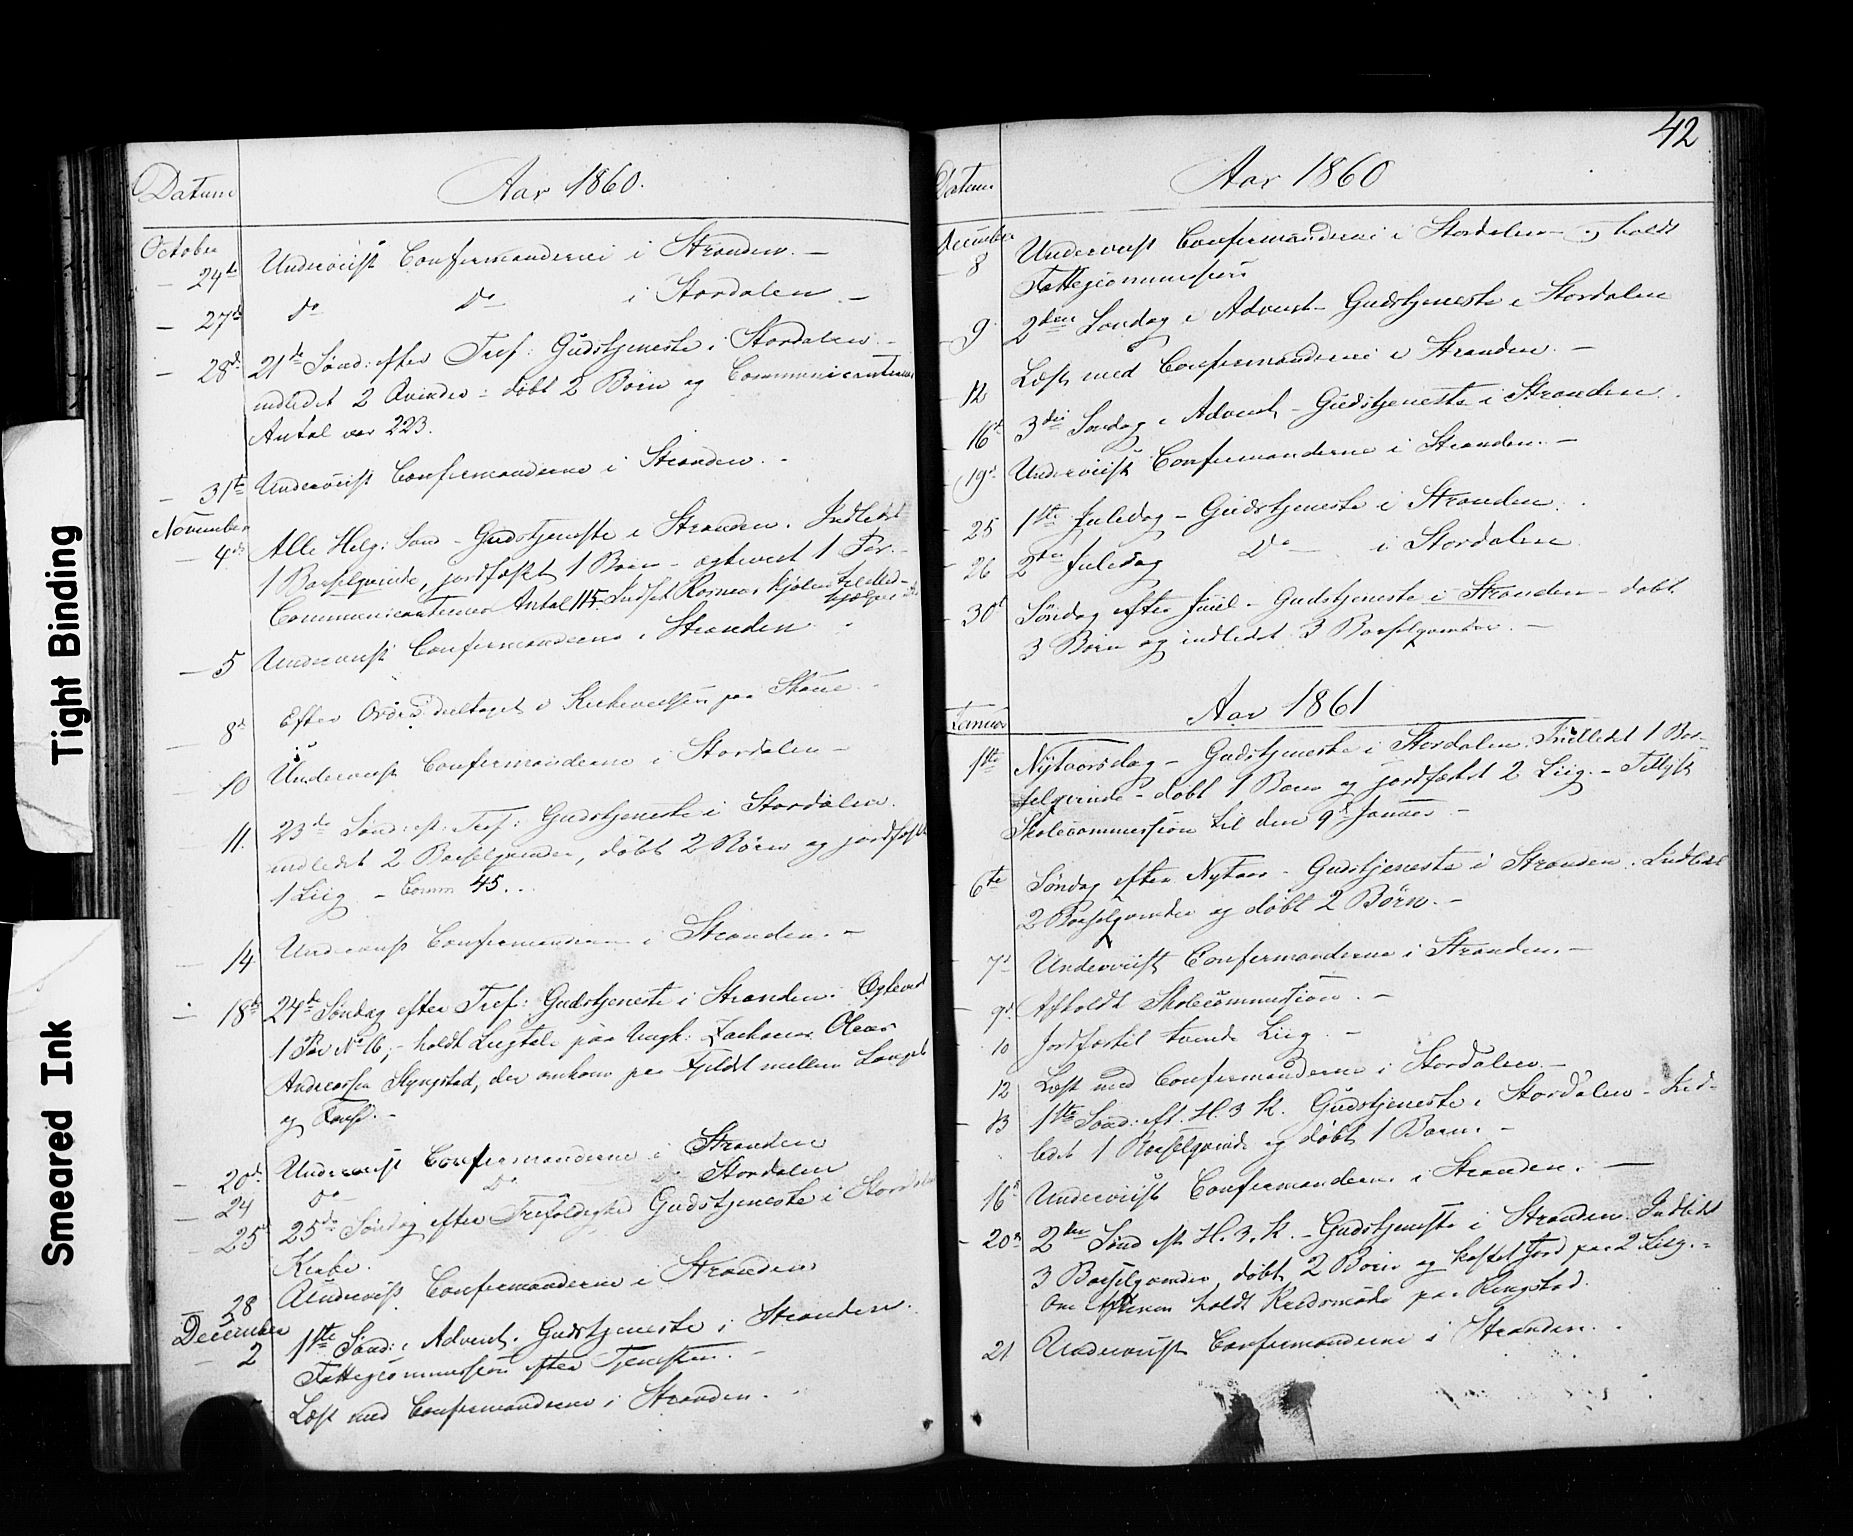 Tight Binding
Smeared Ink
Datum
Aar 1860.
October
24de Underviist Confermanderne i Stranden. –
– 27de Do Do i Stordalen –
– 28de 21de Sønd: efter Tref: Gudstjeneste i Stordalen –
indledet 2 Qvinder – døbt 2 Børn og Communicanternes
Antal var 223.
– 31te Underviist Confermanderne i Stranden. –
November
– 4de Alle Helg: Sønd – Gudstjeneste i Stranden. Indledet
1 Barselqvinde, jordfæstet 1 Barn – egteviet 1 Par. –
Communicanternes Antal 115. Indsat Rasmus
– 5 Underviist Confermanderne i Stranden
8de Efter Ordre deeltaget i Kirkevielsen paa
10 Underviist Confermanderne i Stordalen –
11. 23de Sønd: ef: Tref: Gudstjeneste i Stordalen.
indledet 2 Barselqvinder, døbt 2 Børn og jordfæstet
1 Liig – Comm 45. . .
14. Underviist Confermanderne i Stranden. –
18de 24de Søndag efter Tref: Gudstjeneste i Stranden. Egteviet
1 Par No 16, – holdt Liigtale paa Ungk: Zacharias Oluus
Andreassen Slyngstad, der omkom paa Fjeldt mellem
og
– 20de Underviist Confermanderne i Stranden
– 24 Do Do Do Stordalen
– 25 25de Søndag efter Trefoldighed Gudstjeneste i Stordalens
Kirke.
28 Underviist Confermanderne i Stranden
December
– 2 1ste Sønd: i Advent. Gudstjeneste i Stranden.
Fattigcommission efter Tjenesten. –
Læst med Confermanderne i Stranden. –
42
Datum
Aar 1860
December
– 8 Underviist Confermanderne i Stordalen – og holdt
Fattigcommission
– 9. 2den Søndag i Advent – Gudstjeneste i Stordalen
12 Læst med Confermanderne i Stranden. –
– 16de 3die Søndag i Advent – Gudstjeneste i Stranden.
– 19de Underviist Confermanderne i Stranden. –
25 1ste Juledag – Gudstjeneste i Stranden.
– 26 2den Juledag Do i Stordalen
– 30te Søndag efter Juul – Gudstjeneste i Stranden – døbt
3 Børn og indledet 3 Barselqvinder. –
Januar
Aar 1861
1ste Nytaarsdag – Gudstjeneste i Stordalen. Indledet 1 Bar-
selqvinde – døbt 1 Barn og jordfæstet 2 Liig. – Tillyst
Skolecommission til den 9de Januar –
6te Søndag efter Nytaar – Gudstjeneste i Stranden. Indledet
2 Barselqvinder og døbt 2 Børn. –
7de Underviist Confermanderne i Stranden. –
– 9de Afholdt Skolecommission. –
10 Jordfæstet tvende Liig. –
12 Læst med Confermanderne i Stordalen. –
13 1ste Sønd: eft. H. 3 K. Gudstjeneste i Stordalen – Ind-
ledet 1 Barselqvinde og døbt 1 Barn. –
16de Underviist Confermanderne i Stranden. –
– 20de 2den Sønd eft H. 3. K. – Gudstjeneste i Stranden. Indledet
3 Barselqvinder, døbt 2 Børn og kastet Jord paa 2 Liig. –
Om Aftenen holdt Kredsmøde paa Ringstad.
21 Underviist Confermanderne i Stranden. –